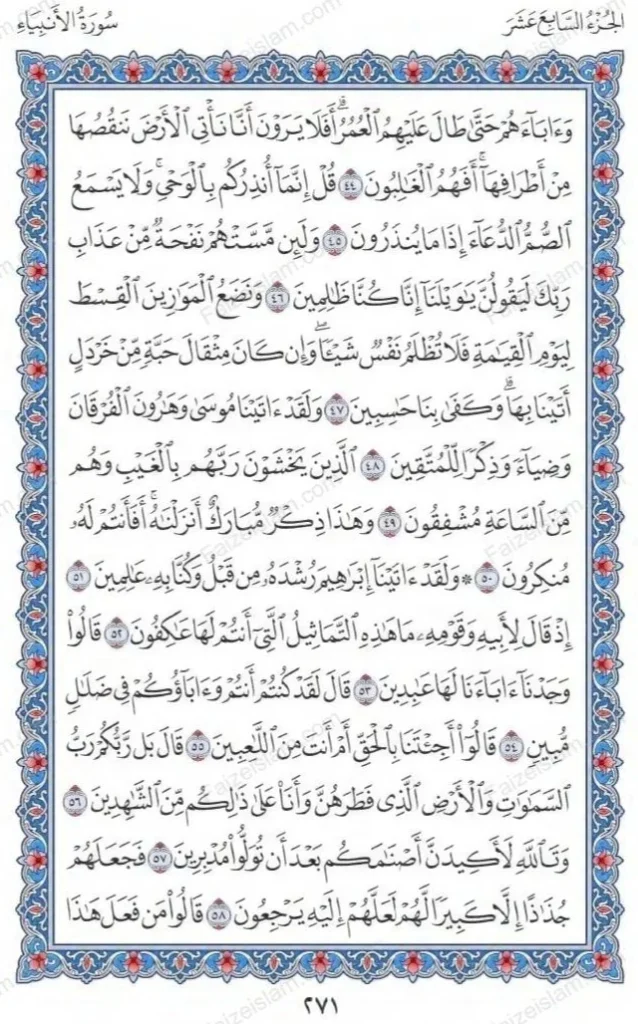 الجُزْءُ السَّابِعَ عَشَرَ
سُورَةُ الأَنبِيَاءِ
وَءَابَآءَهُمْ حَتَّىٰ طَالَ عَلَيْهِمُ ٱلْعُمُرُ ۗ أَفَلَا يَرَوْنَ أَنَّا نَأْتِى ٱلْأَرْضَ نَنقُصُهَا
مِنْ أَطْرَافِهَآ ۚ أَفَهُمُ ٱلْغَٰلِبُونَ ٤٤ قُلْ إِنَّمَآ أُنذِرُكُم بِٱلْوَحْىِ ۚ وَلَا يَسْمَعُ
ٱلصُّمُّ ٱلدُّعَآءَ إِذَا مَا يُنذَرُونَ ٤٥ وَلَئِن مَّسَّتْهُمْ نَفْحَةٌ مِّنْ عَذَابِ
رَبِّكَ لَيَقُولُنَّ يَٰوَيْلَنَآ إِنَّا كُنَّا ظَٰلِمِينَ ٤٦ وَنَضَعُ ٱلْمَوَٰزِينَ ٱلْقِسْطَ
لِيَوْمِ ٱلْقِيَٰمَةِ فَلَا تُظْلَمُ نَفْسٌ شَيْـًٔا ۖ وَإِن كَانَ مِثْقَالَ حَبَّةٍ مِّنْ خَرْدَلٍ
أَتَيْنَا بِهَا ۗ وَكَفَىٰ بِنَا حَٰسِبِينَ ٤٧ وَلَقَدْ ءَاتَيْنَا مُوسَىٰ وَهَٰرُونَ ٱلْفُرْقَانَ
وَضِيَآءً وَذِكْرًا لِّلْمُتَّقِينَ ٤٨ ٱلَّذِينَ يَخْشَوْنَ رَبَّهُم بِٱلْغَيْبِ وَهُم
مِّنَ ٱلسَّاعَةِ مُشْفِقُونَ ٤٩ وَهَٰذَا ذِكْرٌ مُّبَارَكٌ أَنزَلْنَٰهُ ۚ أَفَأَنتُمْ لَهُۥ
مُنكِرُونَ ٥٠ ۞ وَلَقَدْ ءَاتَيْنَآ إِبْرَٰهِيمَ رُشْدَهُۥ مِن قَبْلُ وَكُنَّا بِهِۦ عَٰلِمِينَ ٥١
إِذْ قَالَ لِأَبِيهِ وَقَوْمِهِۦ مَا هَٰذِهِ ٱلتَّمَاثِيلُ ٱلَّتِىٓ أَنتُمْ لَهَا عَٰكِفُونَ ٥٢ قَالُوا۟
وَجَدْنَآ ءَابَآءَنَا لَهَا عَٰبِدِينَ ٥٣ قَالَ لَقَدْ كُنتُمْ أَنتُمْ وَءَابَآؤُكُمْ فِى ضَلَٰلٍ
مُّبِينٍ ٥٤ قَالُوٓا۟ أَجِئْتَنَا بِٱلْحَقِّ أَمْ أَنتَ مِنَ ٱللَّٰعِبِينَ ٥٥ قَالَ بَل رَّبُّكُمْ رَبُّ
ٱلسَّمَٰوَٰتِ وَٱلْأَرْضِ ٱلَّذِى فَطَرَهُنَّ وَأَنَا۠ عَلَىٰ ذَٰلِكُم مِّنَ ٱلشَّٰهِدِينَ ٥٦
وَتَٱللَّهِ لَأَكِيدَنَّ أَصْنَٰمَكُم بَعْدَ أَن تُوَلُّوا۟ مُدْبِرِينَ ٥٧ فَجَعَلَهُمْ
جُذَٰذًا إِلَّا كَبِيرًا لَّهُمْ لَعَلَّهُمْ إِلَيْهِ يَرْجِعُونَ ٥٨ قَالُوا۟ مَن فَعَلَ هَٰذَا
٢٧١
Faizeislam.com